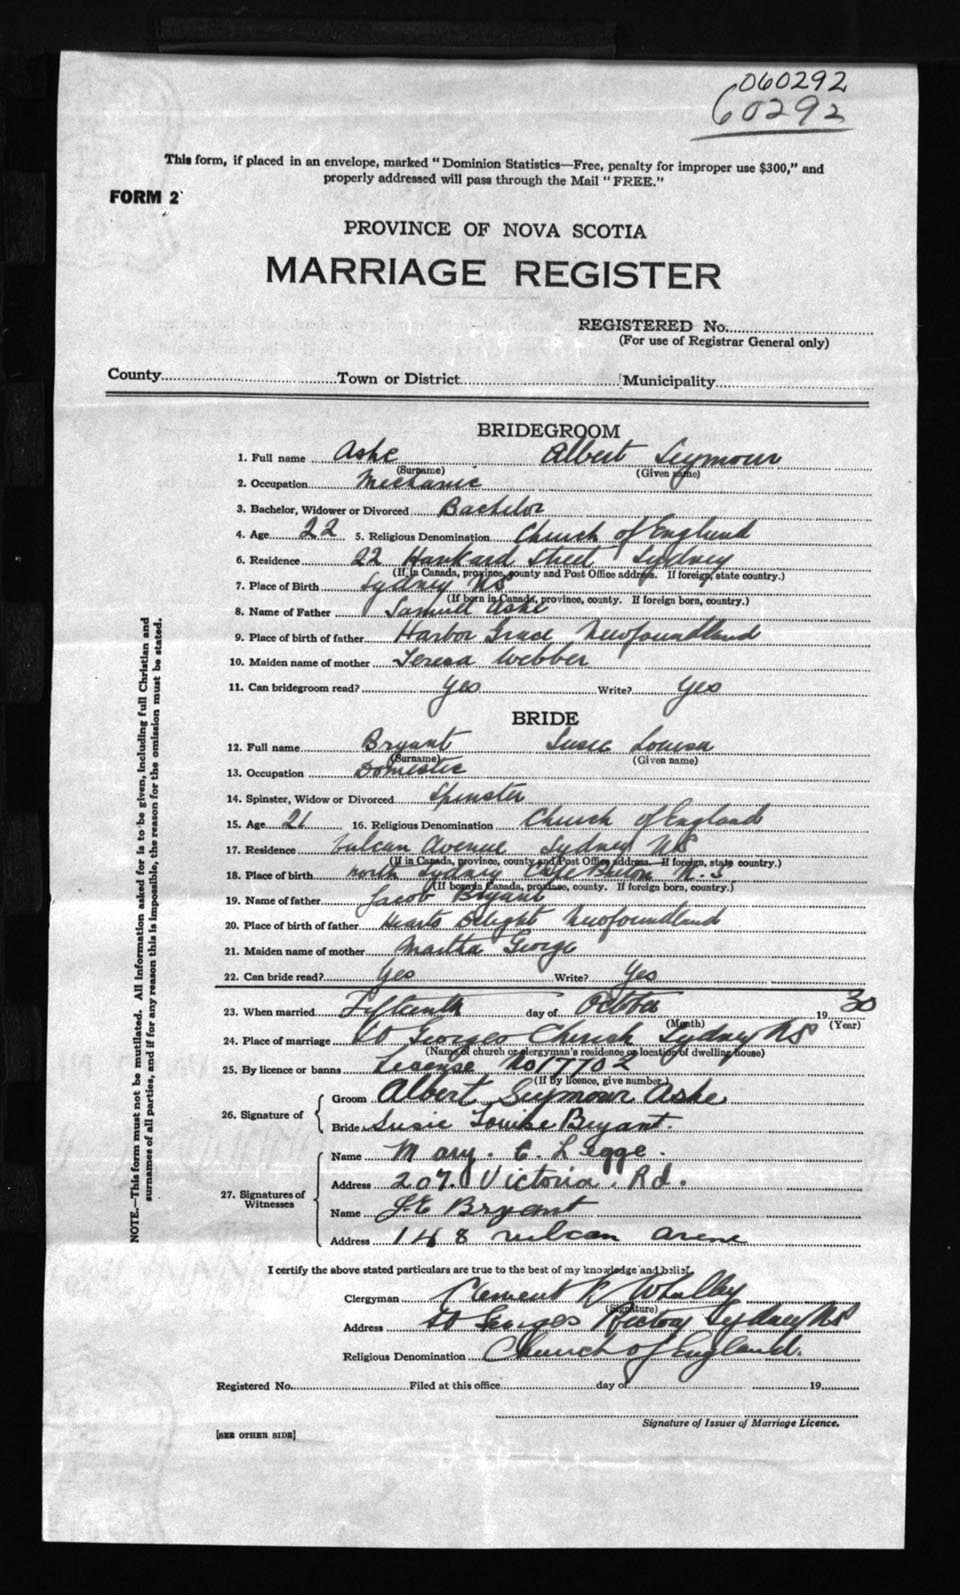 060292
60292
This form, if placed in an envelope, marked "Dominion Statistics—Free, penalty for improper use $300," and
properly addressed will pass through the Mail "FREE."
FORM 2
PROVINCE OF NOVA SCOTIA
MARRIAGE REGISTER
REGISTERED No.
(For use of Registrar General only)
County Town or District Municipality
BRIDEGROOM
1. Full name Ashe Albert Seymour
(Surname) (Given name)
2. Occupation Mechanic
3. Bachelor, Widower or Divorced Bachelor
4. Age 22 5. Religious Denomination Church of England
6. Residence 22 Street Sydney
(If in Canada, province, county and Post Office address. If foreign, state country.)
7. Place of Birth Sydney NS
(If born in Canada, province, county. If foreign born, country.)
8. Name of Father Samuel Ashe
9. Place of birth of father Harbor Grace Newfoundland
10. Maiden name of mother Teresa Webber
11. Can bridegroom read? Yes Write? Yes
BRIDE
12. Full name Bryant Susie Louisa
(Surname) (Given name)
13. Occupation Domestic
14. Spinster, Widow or Divorced Spinster
15. Age 21 16. Religious Denomination Church of England
17. Residence Vulcan Avenue Sydney NS
(If in Canada, province, county and Post Office address. If foreign, state country.)
18. Place of birth North Sydney Cape Breton N.S
(If born in Canada, province, county. If foreign born, country.)
19. Name of father Jacob Bryant
20. Place of birth of father Hearts Delight Newfoundland
21. Maiden name of mother Martha George
22. Can bride read? Yes Write? Yes
23. When married Fifteenth day of October 1930
(Month) (Year)
24. Place of marriage St Georges Church Sydney NS
(Name of church or clergyman's residence or location of dwelling house)
25. By licence or banns License No 17702
(If by licence, give number)
26. Signature of Groom Albert Seymour Ashe
Bride Susie Louise Bryant.
27. Signatures of Witnesses
Name Mary. C. Legge.
Address 207. Victoria. Rd.
Name J.E Bryant
Address 148 vulcan
I certify the above stated particulars are true to the best of my knowledge and belief.
Clergyman Clement R Whalley
(Signature)
Address St Georges Rectory Sydney NS
Religious Denomination Church of England.
Registered No. Filed at this office day of 19
Signature of Issuer of Marriage Licence.
[SEE OTHER SIDE]
NOTE.—This form must not be mutilated. All information asked for is to be given, including full Christian and
surnames of all parties, and if for any reason this is impossible, the reason for the omission must be stated.